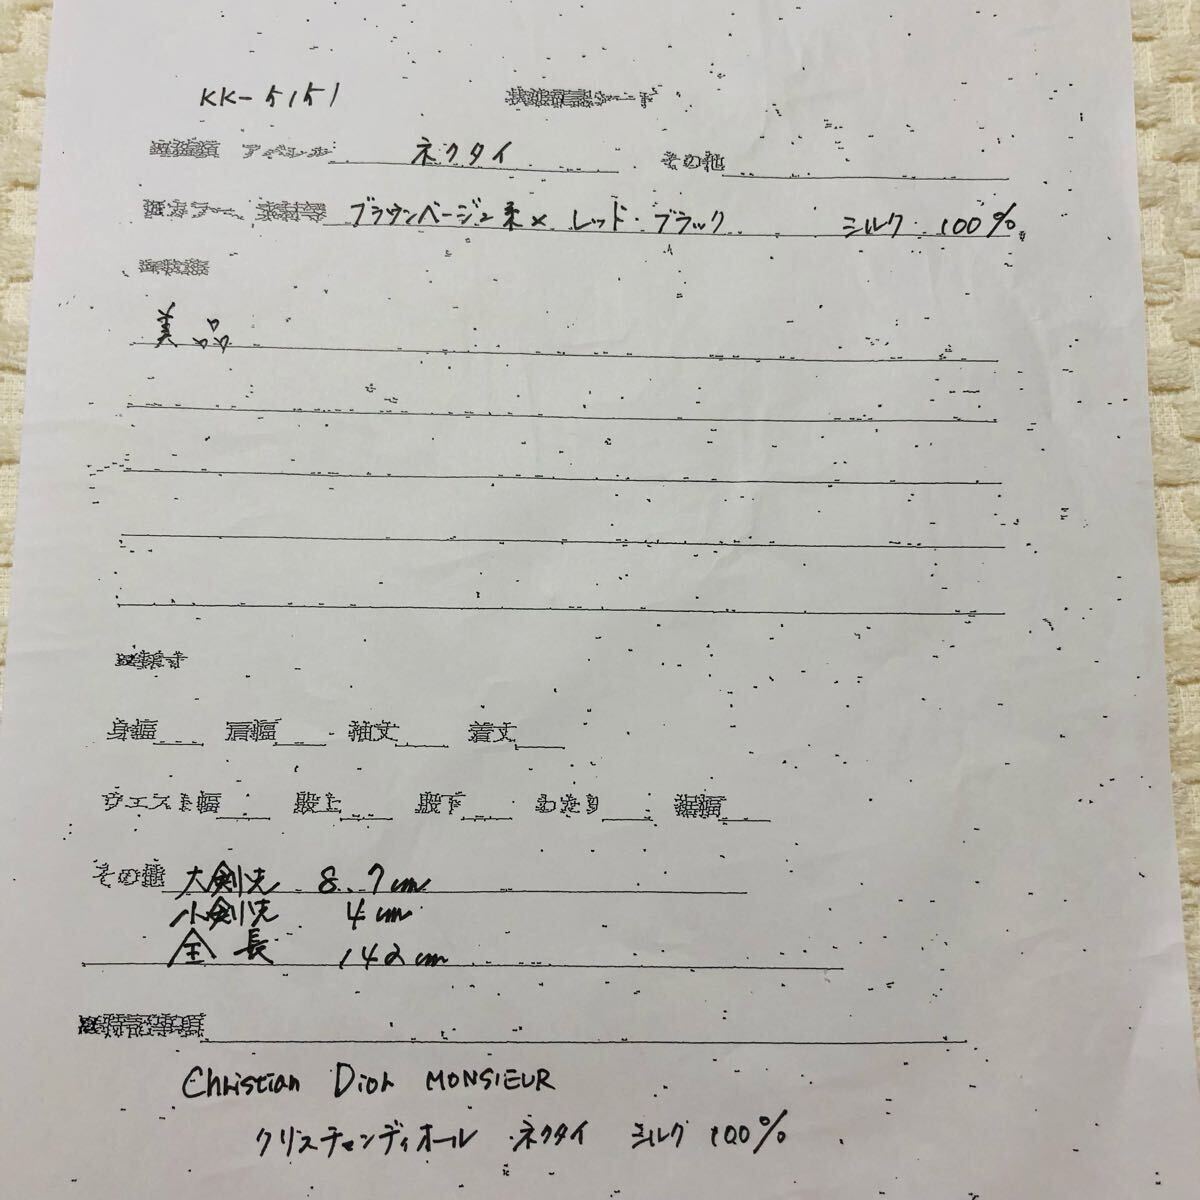 KK-5151 状態確認シート
アパレル ネクタイ その他
カラー、素材等 ブラウンベージュ系× レッド・ブラック シルク 100%
美品
身幅 肩幅 袖丈 着丈
ウエスト幅 股上 股下 わたり 裾幅
その他 大剣先 8.7cm
小剣先 4cm
全長 142cm
特記事項
Christian Dior MONSIEUR
クリスチャンディオール ネクタイ シルク 100%